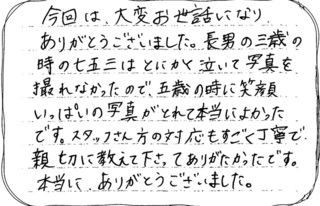 今回は、大変お世話になり
ありがとうございました。長男の三歳の
時の七五三はとにかく泣いて写真を
撮れなかったので、五歳の時に笑顔
いっぱいの写真がとれて本当によかった
です。スタッフさん方の対応もすごく丁寧で、
親切に教えて下さってありがたかったです。
本当に、ありがとうございました。